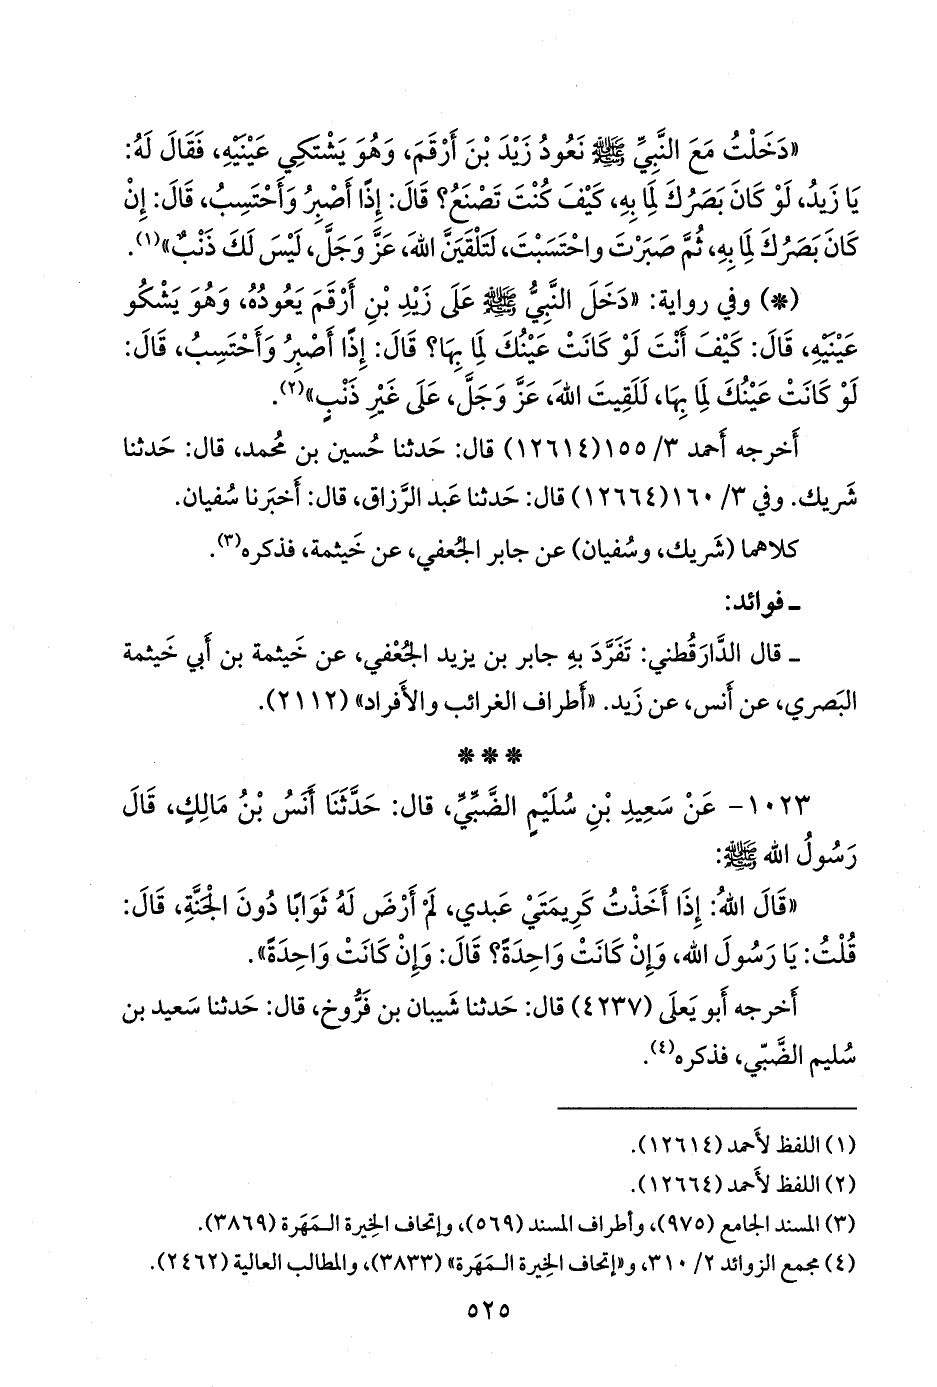 «دَخَلْتُ مَعَ النَّبِيِّ ﷺ نَعُودُ زَيْدَ بْنَ أَرْقَمَ، وَهُوَ يَشْتَكِي عَيْنَيْهِ، فَقَالَ لَهُ:
يَا زَيْدُ، لَوْ كَانَ بَصَرُكَ لِمَا بِهِ، كَيْفَ كُنْتَ تَصْنَعُ؟ قَالَ: إِذًا أَصْبِرُ وَأَحْتَسِبُ، قَالَ: إِنْ
كَانَ بَصَرُكَ لِمَا بِهِ، ثُمَّ صَبَرْتَ واحْتَسَبْتَ، لَتَلْقَيَنَّ اللهَ، عَزَّ وَجَلَّ، لَيْسَ لَكَ ذَنْبٌ»(١).
(*) وفي رواية: «دَخَلَ النَّبِيُّ ﷺ عَلَى زَيْدِ بْنِ أَرْقَمَ يَعُودُهُ، وَهُوَ يَشْكُو
عَيْنَيْهِ، قَالَ: كَيْفَ أَنْتَ لَوْ كَانَتْ عَيْنُكَ لِمَا بِهَا؟ قَالَ: إِذًا أَصْبِرُ وَأَحْتَسِبُ، قَالَ:
لَوْ كَانَتْ عَيْنُكَ لِمَا بِهَا، لَلَقِيتَ اللهَ، عَزَّ وَجَلَّ، عَلَى غَيْرِ ذَنْبٍ»(٢).
أَخرجه أَحمد ٣/ ١٥٥(١٢٦١٤) قال: حَدثنا حُسين بن مُحمد، قال: حَدثنا
شَريك. وفي ٣/ ١٦٠(١٢٦٦٤) قال: حَدثنا عَبد الرَّزاق، قال: أَخبَرنا سُفيان.
كلاهما (شَريك، وسُفيان) عن جابر الجُعفي، عن خَيثمة، فذكره(٣).
ـ فوائد:
ـ قال الدَّارَقُطني: تَفَرَّدَ بِهِ جابر بن يزيد الجُعْفي، عن خَيثمة بن أَبي خَيثمة
البَصري، عن أَنس، عن زَيد. «أَطراف الغرائب والأَفراد» (٢١١٢).
* * *
١٠٢٣- عَنْ سَعِيدِ بْنِ سُلَيْمٍ الضَّبِّيِّ، قال: حَدَّثَنَا أَنَسُ بْنُ مَالِكٍ، قَالَ
رَسُولُ الله ﷺ:
«قَالَ اللهُ: إِذَا أَخَذْتُ كَرِيمَتَيْ عَبدي، لَمْ أَرْضَ لَهُ ثَوَابًا دُونَ الجَنَّةِ، قَالَ:
قُلْتُ: يَا رَسُولَ الله، وَإِنْ كَانَتْ وَاحِدَةً؟ قَالَ: وَإِنْ كَانَتْ وَاحِدَةً».
أَخرجه أَبو يَعلَى (٤٢٣٧) قال: حَدثنا شَيبان بن فَرُّوخ، قال: حَدثنا سَعيد بن
سُليم الضَّبّي، فذكره(٤).
(١) اللفظ لأَحمد (١٢٦١٤).
(٢) اللفظ لأَحمد (١٢٦٦٤).
(٣) المسند الجامع (٩٧٥)، وأطراف المسند (٥٦٩)، وإتحاف الخِيرة الـمَهَرة (٣٨٦٩).
(٤) مجمع الزوائد ٢/ ٣١٠، و«إتحاف الخِيرة الـمَهَرة» (٣٨٣٣)، والمطالب العالية (٢٤٦٢).
٥٢٥